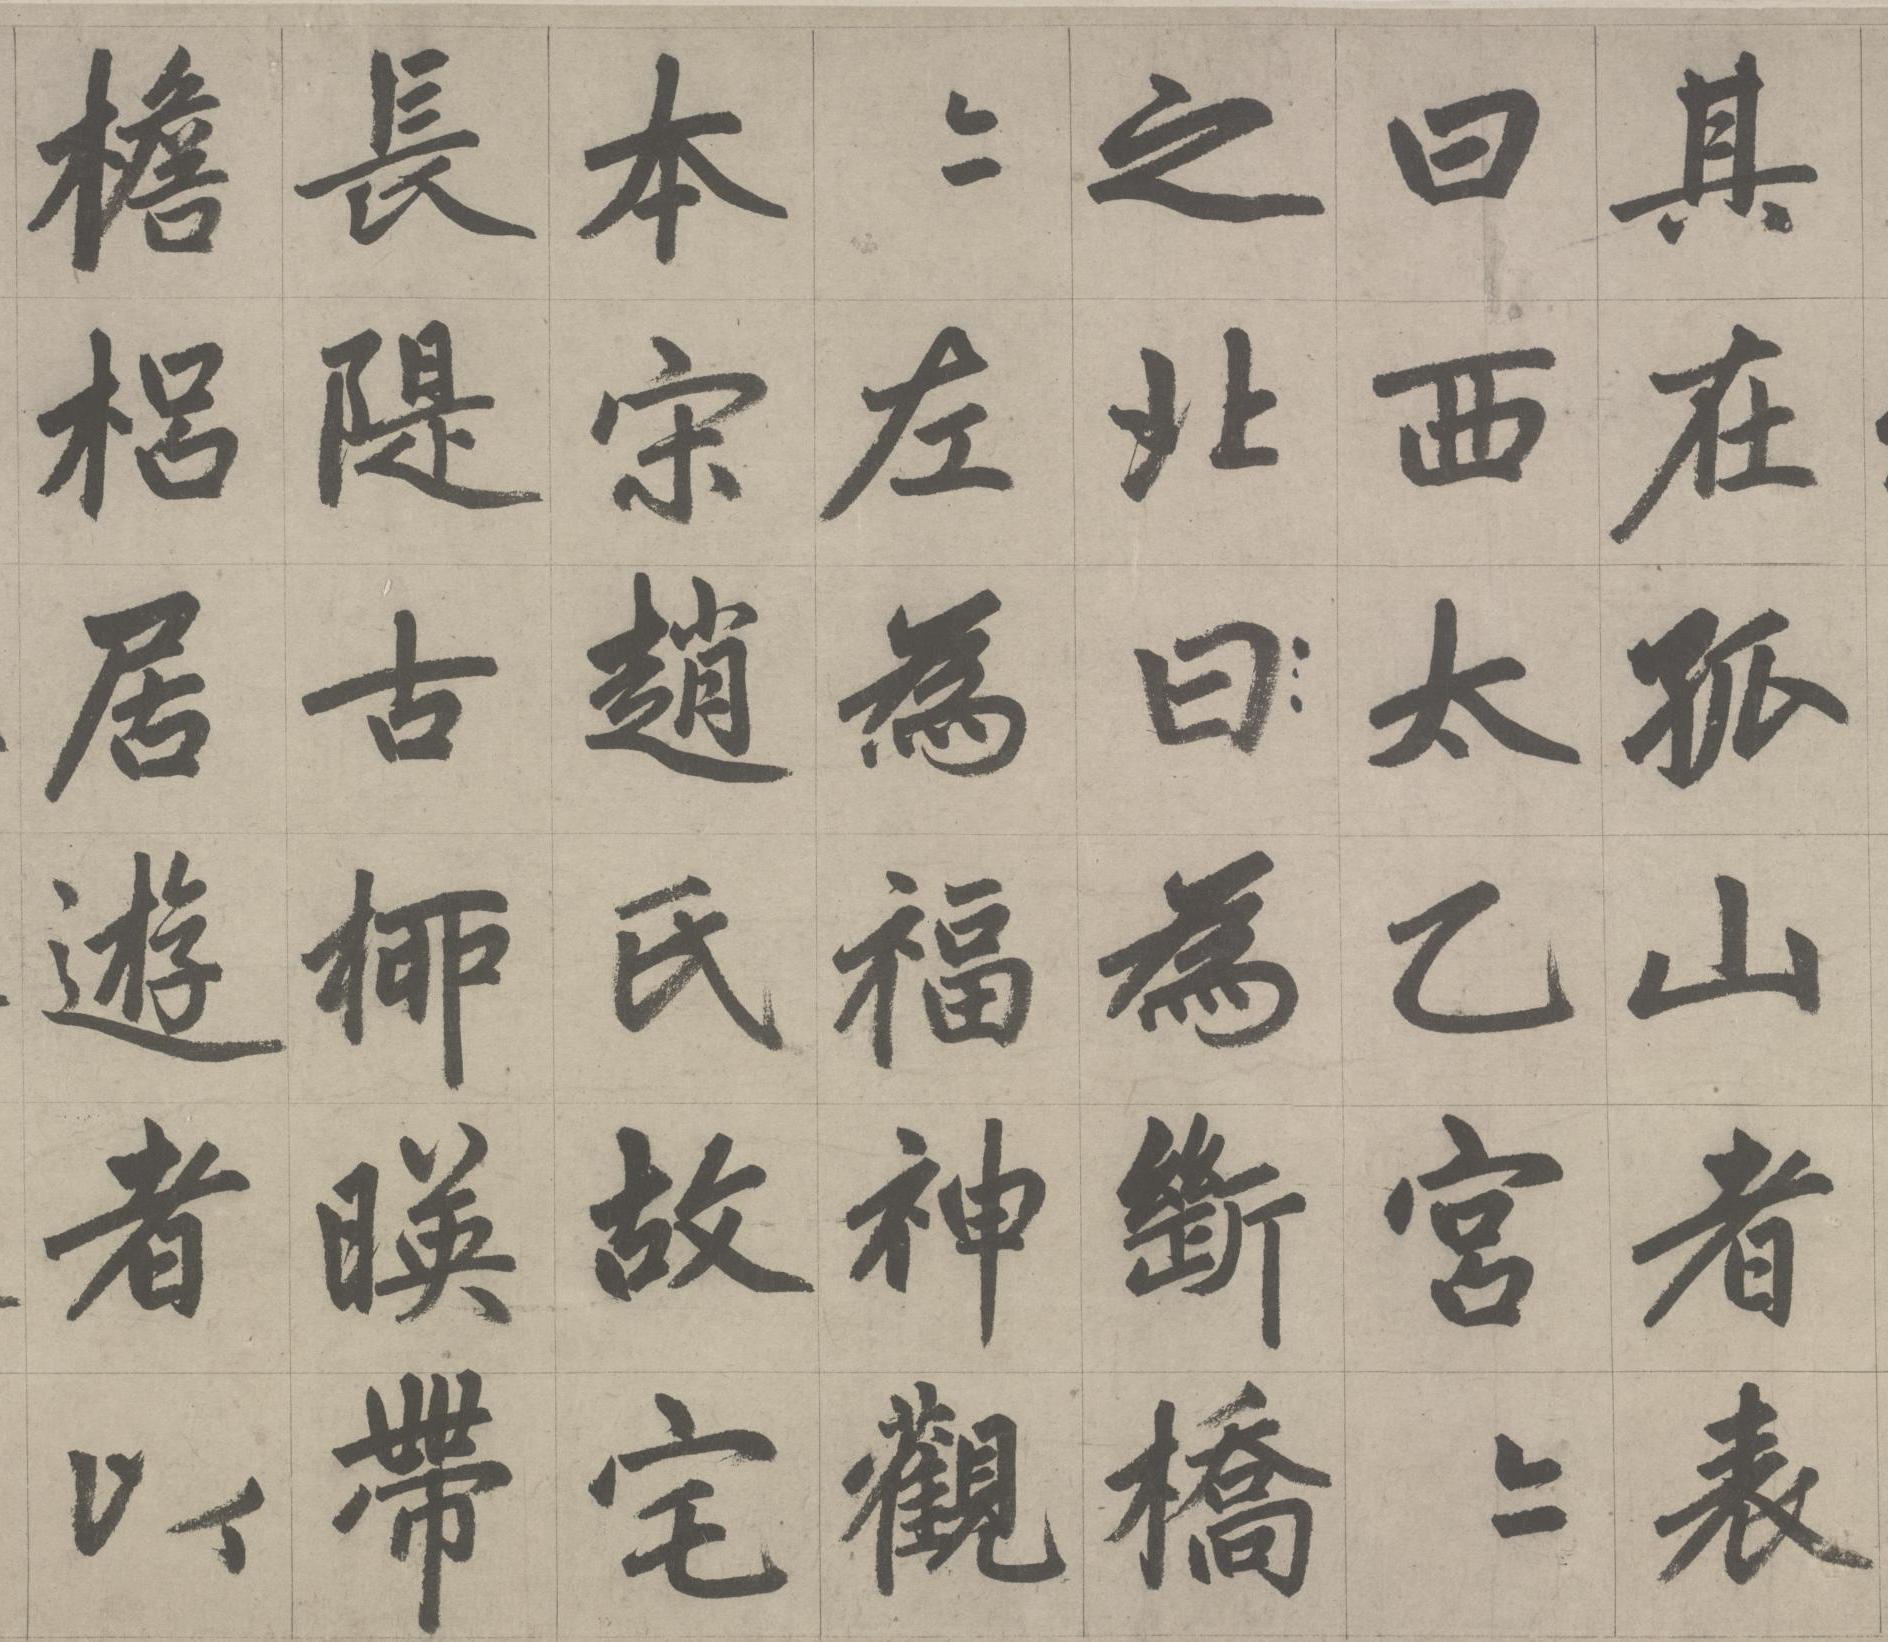 其在孤山者表
曰西太乙宫〻
之北曰為斷橋
〻左為福神觀
本宋趙氏故宅
長隄古柳暎帶
檐梠居遊者以